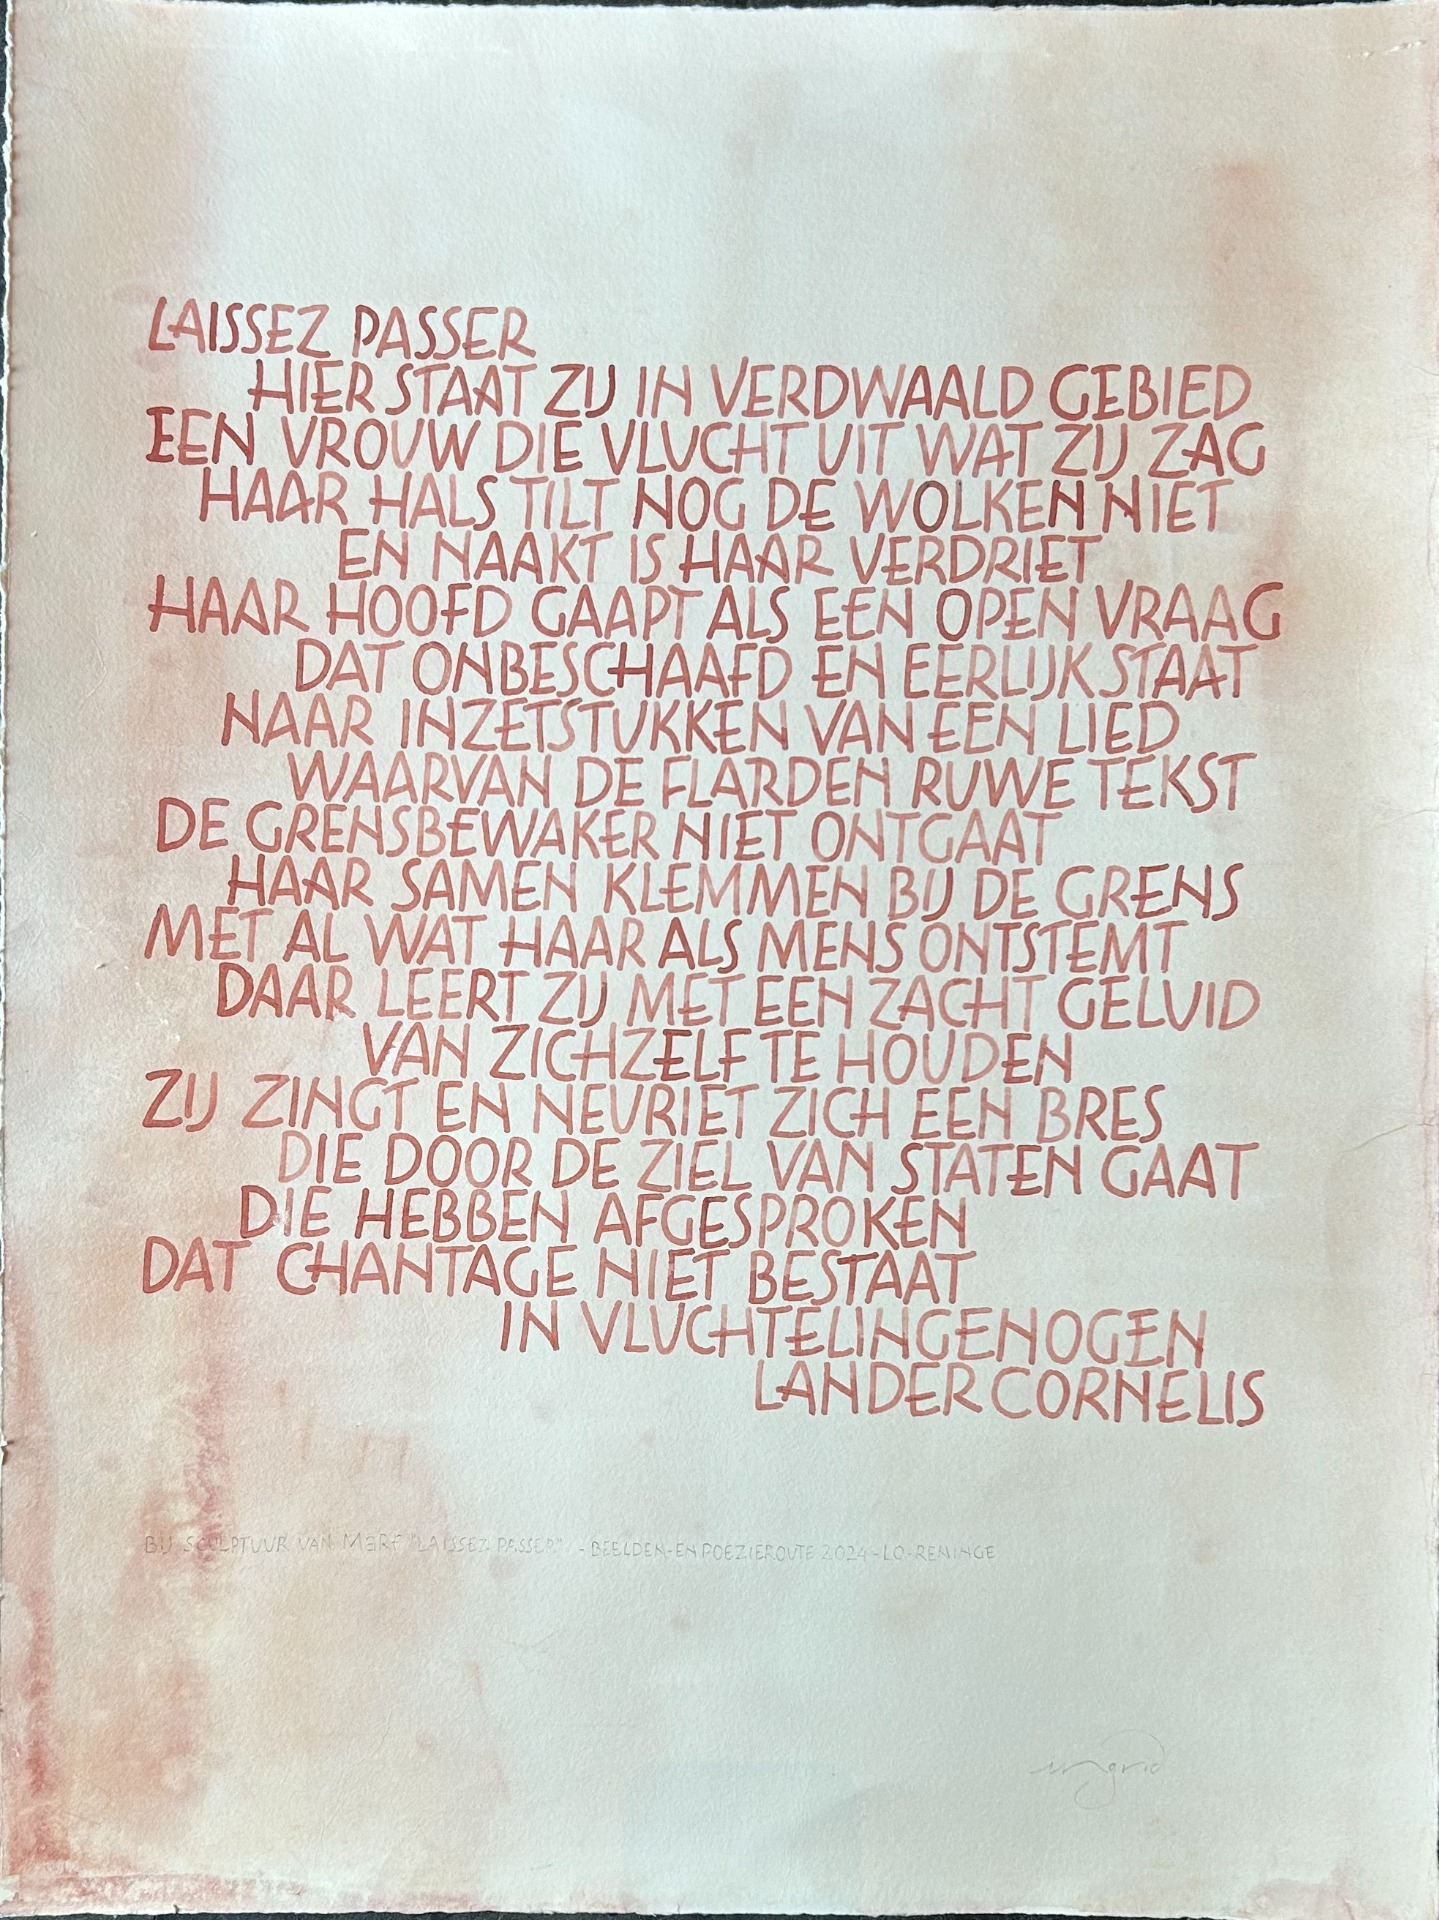 LAISSEZ PASSER
HIER STAAT ZIJ IN VERDWAALD GEBIED
EEN VROUW DIE VLUCHT UIT WAT ZIJ ZAG
HAAR HALS TILT NOG DE WOLKEN NIET
EN NAAKT IS HAAR VERDRIET
HAAR HOOFD GAAPT ALS EEN OPEN VRAAG
DAT ONBESCHAAFD EN EERLIJK STAAT
NAAR INZETSTUKKEN VAN EEN LIED
WAARVAN DE FLARDEN RUWE TEKST
DE GRENSBEWAKER NIET ONTGAAT
HAAR SAMEN KLEMMEN BIJ DE GRENS
MET AL WAT HAAR ALS MENS ONTSTEMT
DAAR LEERT ZIJ MET EEN ZACHT GELUID
VAN ZICHZELF TE HOUDEN
ZIJ ZINGT EN NEURIET ZICH EEN BRES
DIE DOOR DE ZIEL VAN STATEN GAAT
DIE HEBBEN AFGESPROKEN
DAT CHANTAGE NIET BESTAAT
IN VLUCHTELINGENOGEN
LANDER CORNELIS
BIJ SCULPTUUR VAN "LAISSEZ PASSER" - BEELDEN-EN POEZIEROUTE 2024 - LO-RENINGE
ingrid